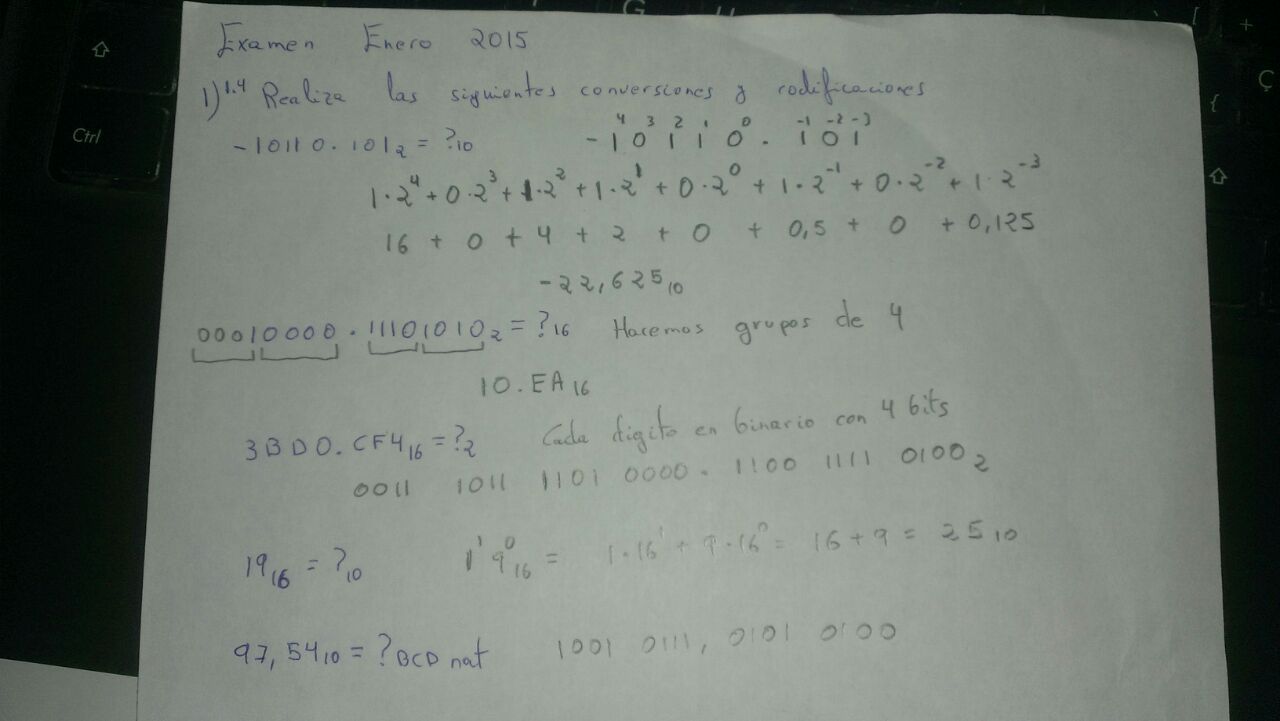 Examen Enero 2015
1) 1.4 Realiza las siguientes conversiones y codificaciones
-10110.101₂ = ?₁₀ -1⁴ 0³ 1² 1¹ 0⁰ . 1⁻¹ 0⁻² 1⁻³
1·2⁴ + 0·2³ + 1·2² + 1·2¹ + 0·2⁰ + 1·2⁻¹ + 0·2⁻² + 1·2⁻³
16 + 0 + 4 + 2 + 0 + 0,5 + 0 + 0,125
-22,625₁₀
00010000.11101010₂ = ?₁₆ Hacemos grupos de 4
10.EA₁₆
3BD0.CF4₁₆ = ?₂ Cada digito en binario con 4 bits
0011 1011 1101 0000.1100 1111 0100₂
19₁₆ = ?₁₀ 1¹ 9⁰₁₆ = 1·16¹ + 9·16⁰ = 16+9 = 25₁₀
97,54₁₀ = ?BCD nat 1001 0111, 0101 0100
Ctrl